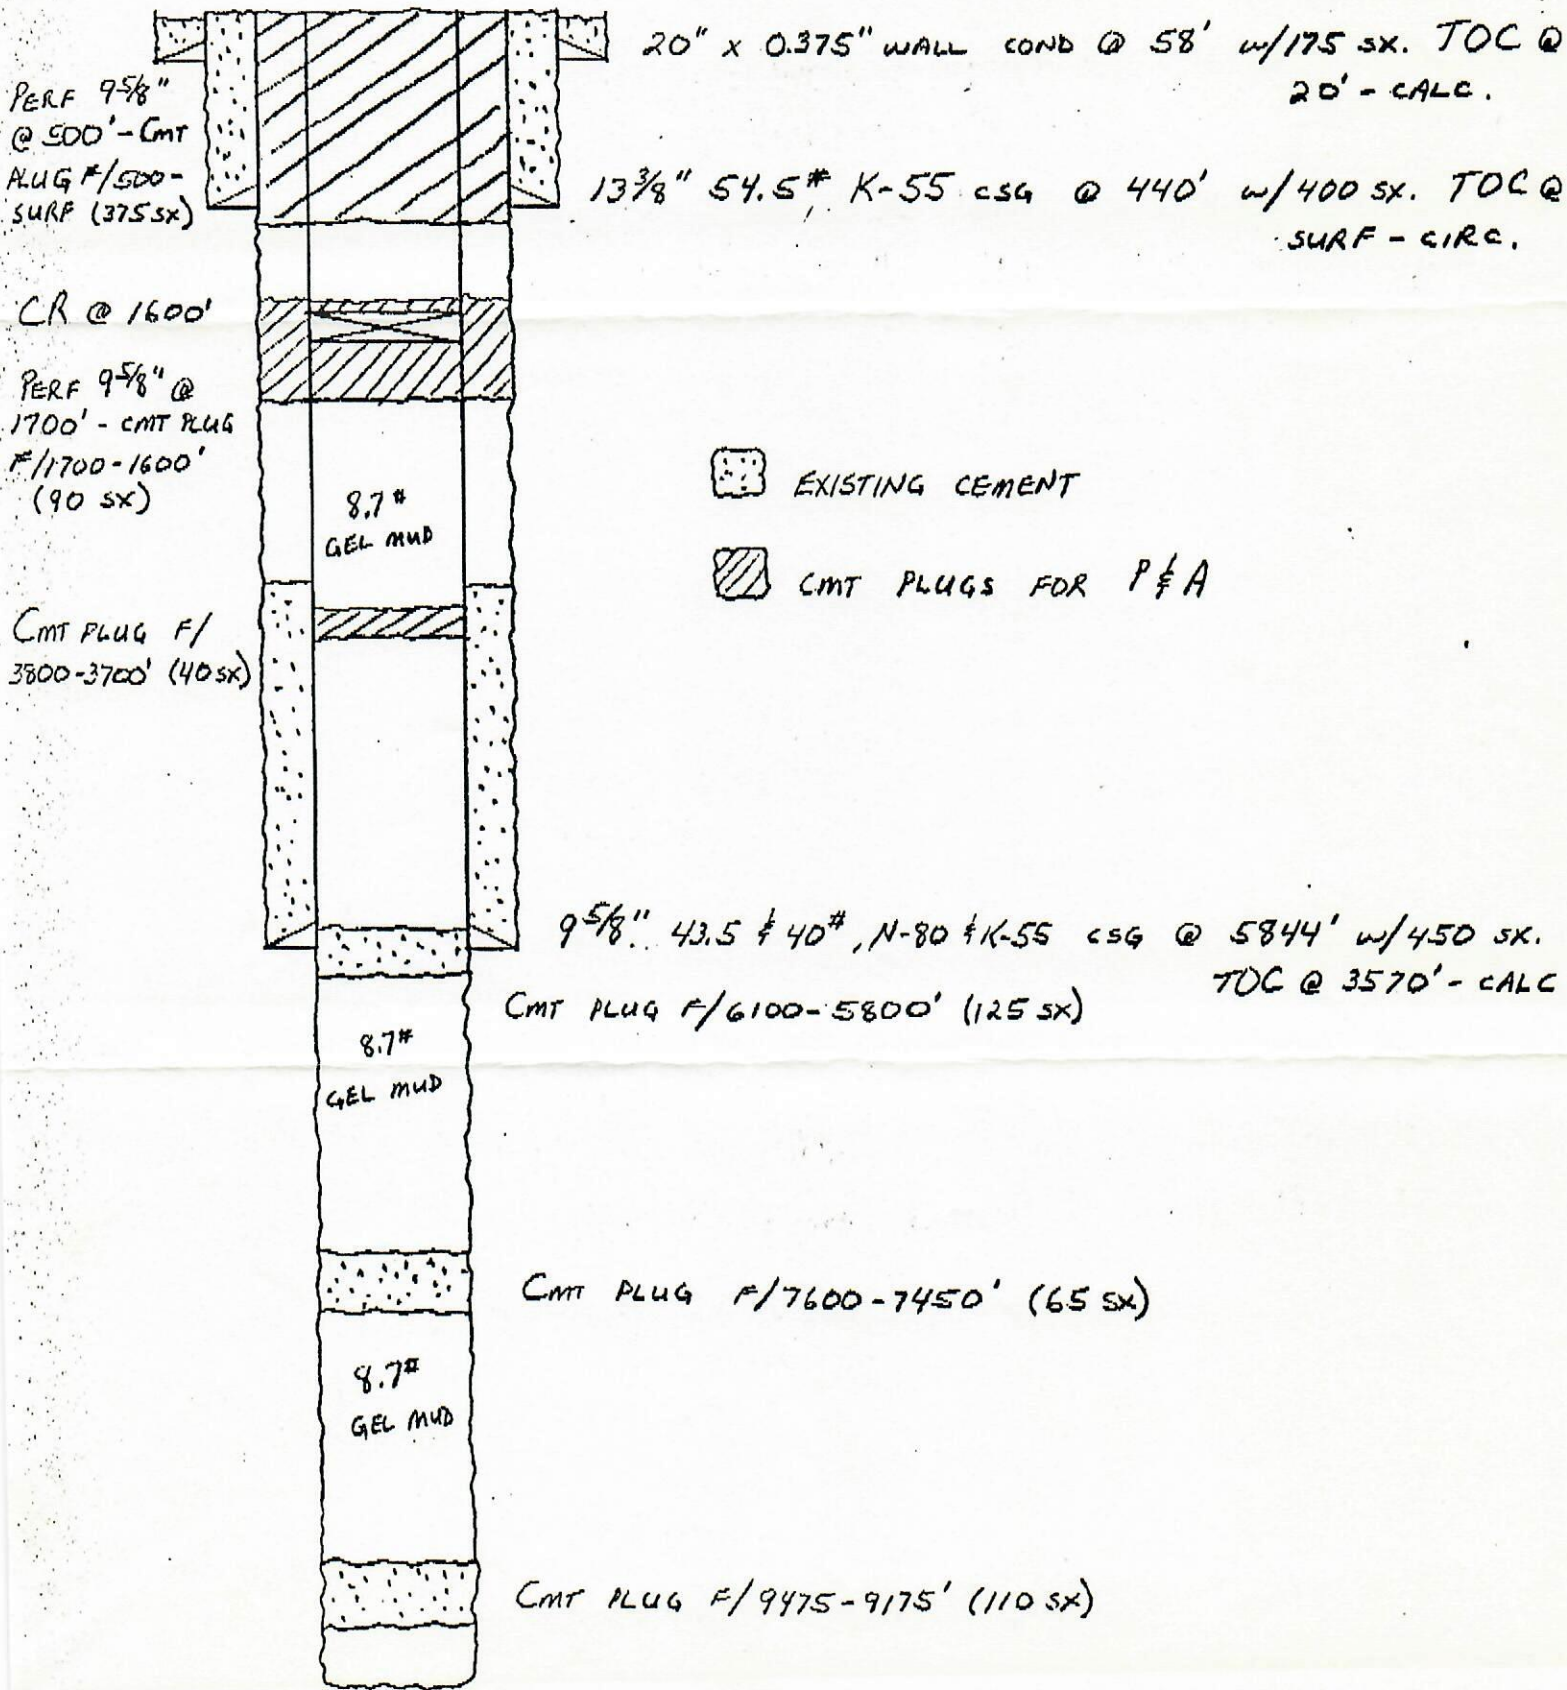 20" x 0.375" WALL COND @ 58' w/175 SX. TOC @
20' - CALC.
PERF 9 5/8"
@ 500' - CMT
PLUG F/500-
SURF (375 SX)
13 3/8" 54.5# K-55 CSG @ 440' w/400 SX. TOC @
SURF - CIRC.
CR @ 1600'
PERF 9 5/8" @
1700' - CMT PLUG
F/1700-1600'
(90 SX)
8.7#
GEL MUD
EXISTING CEMENT
CMT PLUGS FOR P & A
CMT PLUG F/
3800-3700' (40 SX)
9 5/8" 43.5 & 40#, N-80 & K-55 CSG @ 5844' w/450 SX.
TOC @ 3570' - CALC
CMT PLUG F/6100-5800' (125 SX)
8.7#
GEL MUD
CMT PLUG F/7600-7450' (65 SX)
8.7#
GEL MUD
CMT PLUG F/9475-9175' (110 SX)